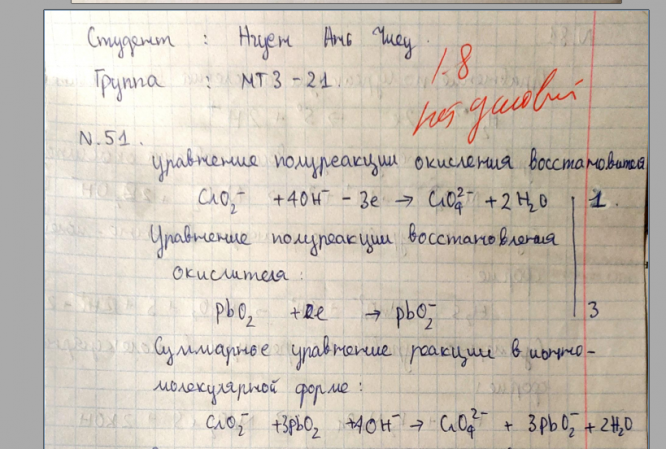 Студент : Нгуен Ань Чиеу.
Группа : МТ3-21.
1-8
нет условий
N.51.
уравнение полуреакции окисления восстановителя
CrO₂⁻ + 4OH⁻ - 3e → CrO₄²⁻ + 2H₂O 1.
Уравнение полуреакции восстановления
окислителя :
pbO₂ + e → pbO₂⁻ 3
Суммарное уравнение реакции в ионно-
молекулярной форме :
CrO₂⁻ + 3pbO₂ + 4OH⁻ → CrO₄²⁻ + 3pbO₂⁻ + 2H₂O